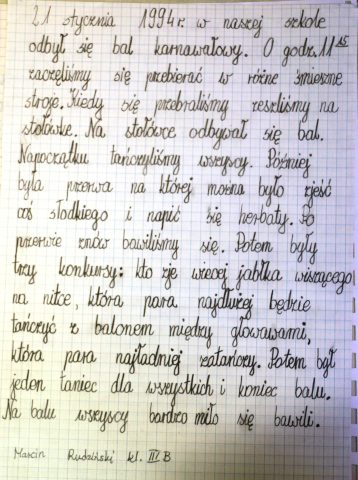 21 stycznia 1994 r. w naszej szkole
odbył się bal karnawałowy. O godz. 11⁴⁵
zaczęliśmy się przebierać w różne śmieszne
stroje. Kiedy się przebraliśmy zeszliśmy na
stołówkę. Na stołówce odbywał się bal.
Napoczątku tańczyliśmy wszyscy. Później
była przerwa na której można było zjeść
coś słodkiego i napić się herbaty. Po
przerwie znów bawiliśmy się. Potem były
trzy konkursy: kto zje więcej jabłka wiszącego
na nitce, która para najdłużej będzie
tańczyć z balonem między głowawami,
która para najładniej zatańczy. Potem był
jeden taniec dla wszystkich i koniec balu.
Na balu wszyscy bardzo miło się bawili.
Marcin Rudziński kl. III B